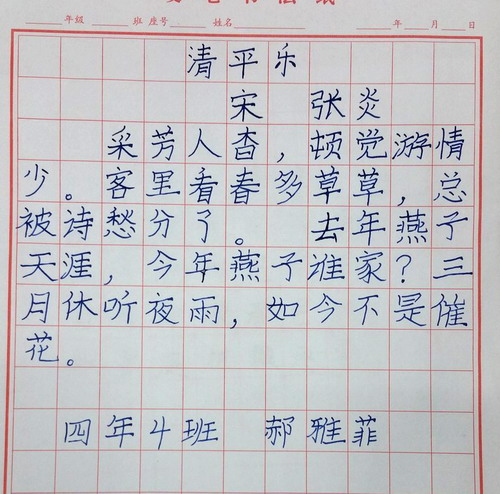 年级 班 座号 姓名 年 月 日
清平乐
宋 张炎
采芳人杳,顿觉游情
少。客里看春多草草,总
被诗愁分了。 去年燕子
天涯,今年燕子谁家?三
月休听夜雨,如今不是催
花。
四年4班 郝雅菲